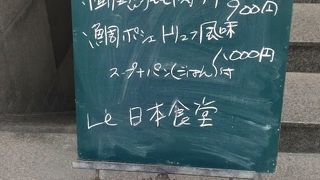 900円
鯛ポシェトリュフ風味
1,000円
スープ+パン(ごはん)付
Le 日本食堂